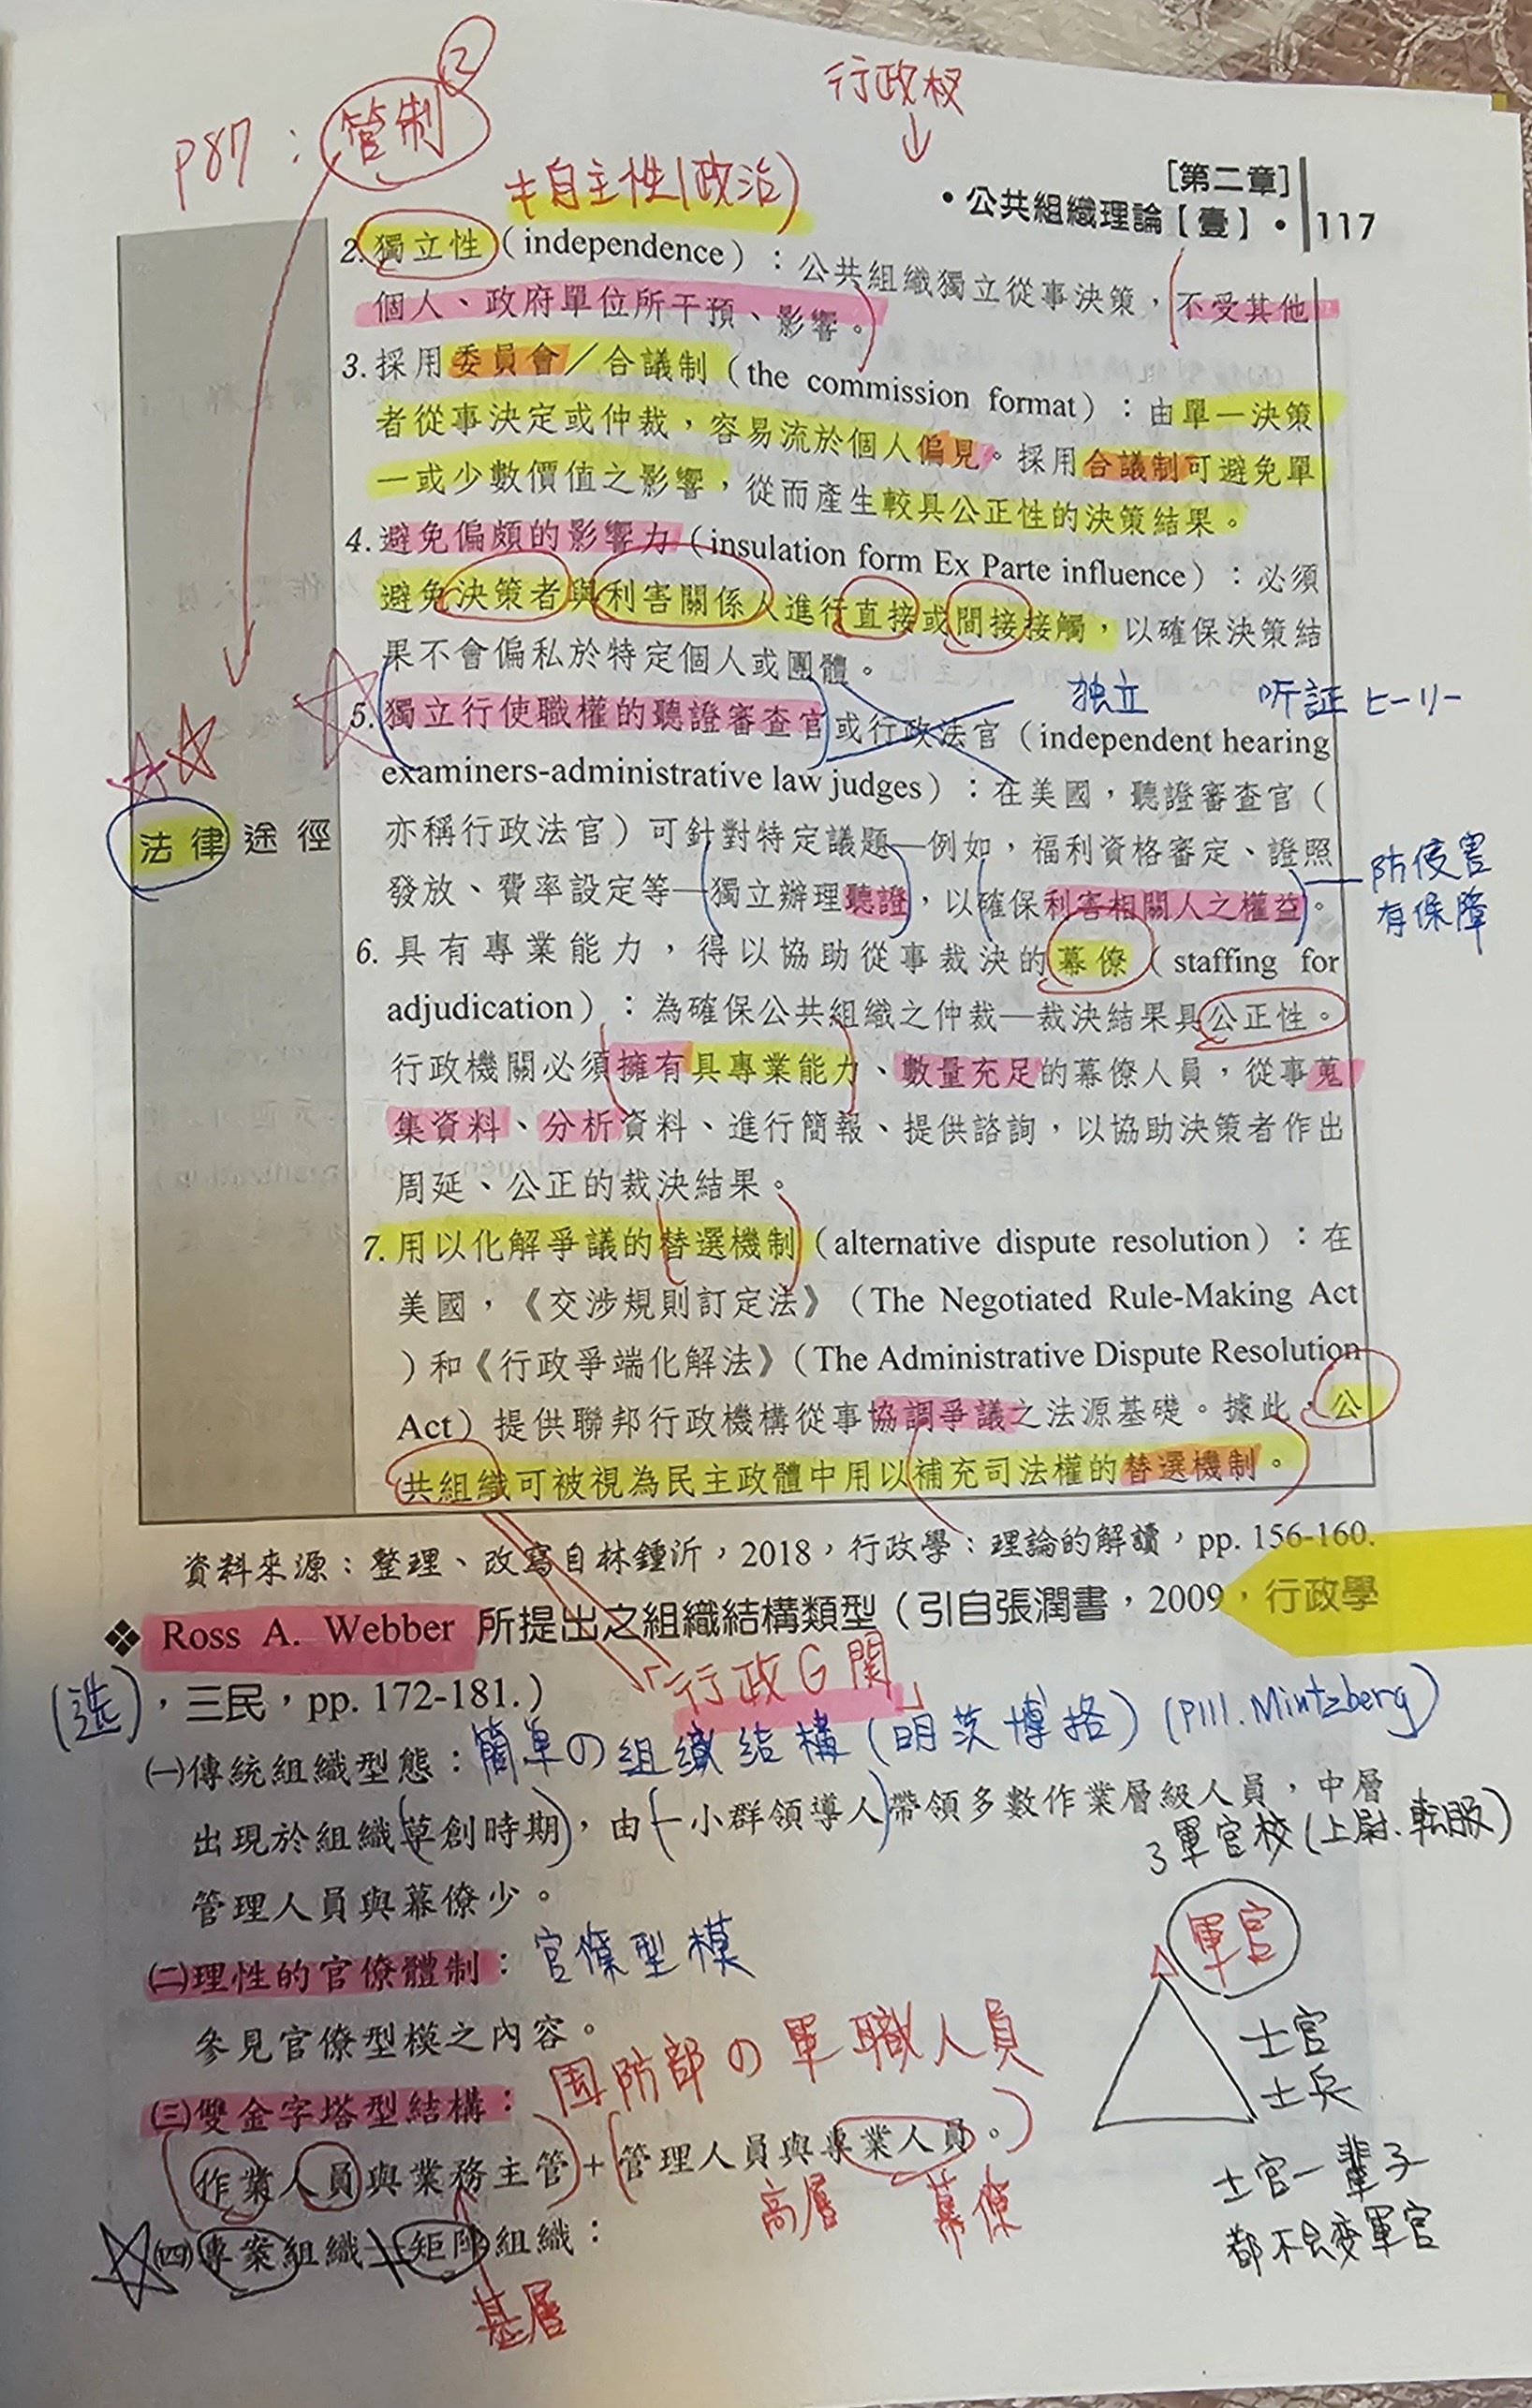 ②
P87：管制
行政权
↓
≠自主性(政治)
[第二章]
•公共組織理論【壹】• 117
2.獨立性（independence）：公共組織獨立從事決策，不受其他
個人、政府單位所干預、影響。
3.採用委員會／合議制（the commission format）：由單一決策
者從事決定或仲裁，容易流於個人偏見。採用合議制可避免單
一或少數價值之影響，從而產生較具公正性的決策結果。
4.避免偏頗的影響力（insulation form Ex Parte influence）：必須
避免決策者與利害關係人進行直接或間接接觸，以確保決策結
果不會偏私於特定個人或團體。
独立 听証 ヒーリー
5.獨立行使職權的聽證審查官或行政法官（independent hearing
examiners-administrative law judges）：在美國，聽證審查官（
法律途徑
亦稱行政法官）可針對特定議題—例如，福利資格審定、證照
發放、費率設定等—獨立辦理聽證，以確保利害相關人之權益。
防侵害
有保障
6.具有專業能力，得以協助從事裁決的幕僚（staffing for
adjudication）：為確保公共組織之仲裁—裁決結果具公正性。
行政機關必須擁有具專業能力、數量充足的幕僚人員，從事蒐
集資料、分析資料、進行簡報、提供諮詢，以協助決策者作出
周延、公正的裁決結果。
7.用以化解爭議的替選機制（alternative dispute resolution）：在
美國，《交涉規則訂定法》（The Negotiated Rule-Making Act
）和《行政爭端化解法》（The Administrative Dispute Resolution
Act）提供聯邦行政機構從事協調爭議之法源基礎。據此，公
共組織可被視為民主政體中用以補充司法權的替選機制。
資料來源：整理、改寫自林鍾沂，2018，行政學：理論的解讀，pp. 156-160.
❖ Ross A. Webber 所提出之組織結構類型（引自張潤書，2009，行政學
「行政G関」
(选)，三民，pp. 172-181.）
㈠傳統組織型態：簡单の組織结構(明茨博格)(P111. Mintzberg)
出現於組織草創時期，由一小群領導人帶領多數作業層級人員，中層
管理人員與幕僚少。
3軍官校(上尉.転服)
軍官
㈡理性的官僚體制：官僚型模
參見官僚型模之內容。
士官
士兵
㈢雙金字塔型結構：国防部の軍職人員
作業人員與業務主管+管理人員與專業人員。
高層 幕僚
士官一輩子
都不会变軍官
㈣專案組織≠矩陣組織：
基層